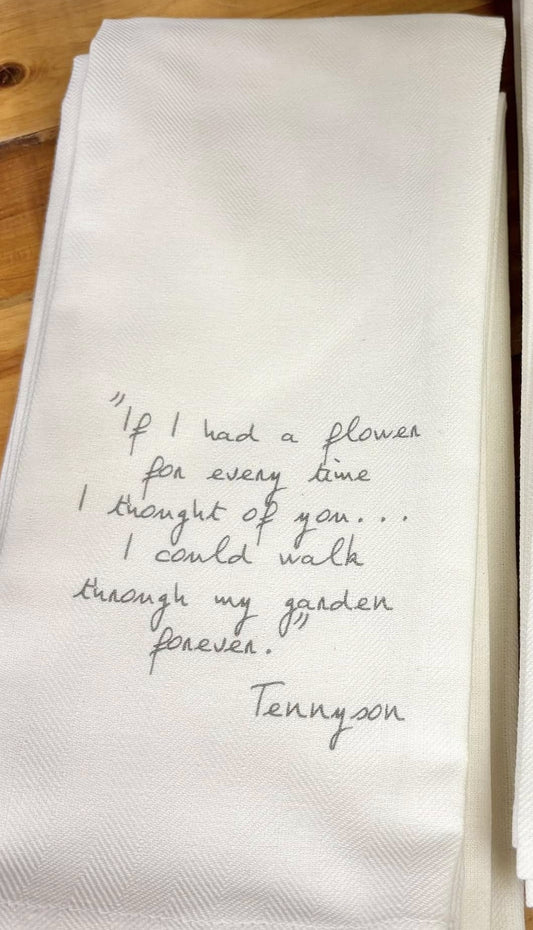 "If I had a flower
for every time
I thought of you...
I could walk
through my garden
forever."
Tennyson